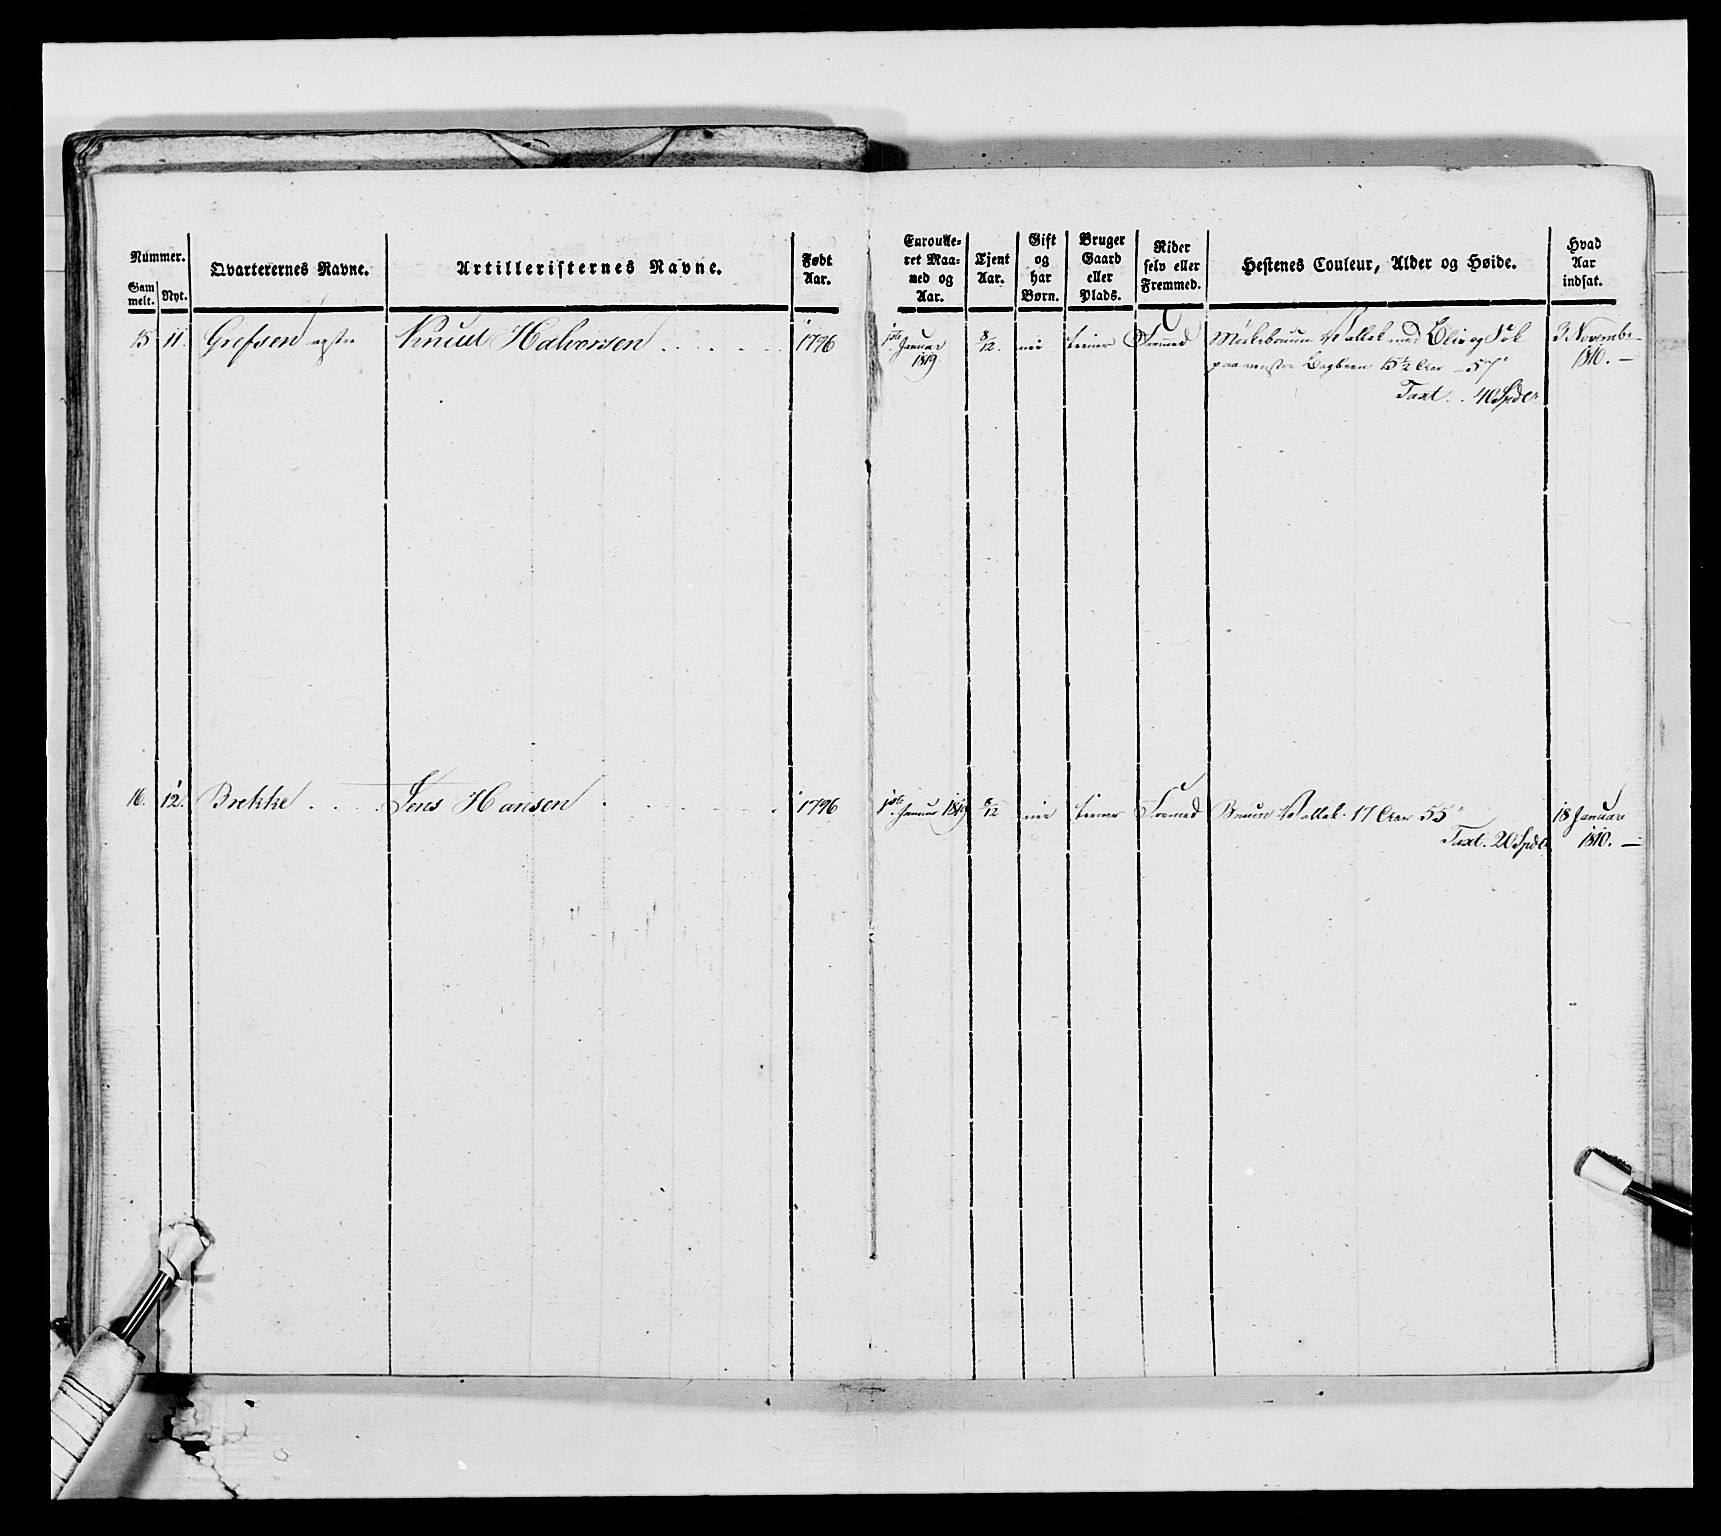 Nummer.
Gam melt.
Nyt.
Qvarterernes Navne.
Artilleristernes Navne.
Født Aar.
Enroulle-
ret Maa-
ned og
Aar.
Tjent
Aar.
Gift
og
har
Børn.
Bruger
Gaard
eller
Plads.
Rider
selv eller
Fremmed.
Hestenes Couleur, Alder og Høide.
Hvad
Aar
indsat.
15 11. Grefsen Knud Halvorsen 1796
1ste Januar
1819
8/12. nei tiener Fremmed
Mørkebruun Vallak med Blis og
paa venstre Bagbeen 15½ Aar
Taxt. 40 Spdlr
3 Novembr
1810.
16. 12. Brekke Jens Hansen 1796
1ste Januar 1819 8/12 nei tiener Fremed Bruun Vallak 17 Aar 55"
Taxt. 20 Spdlr
18 Januari
1810.